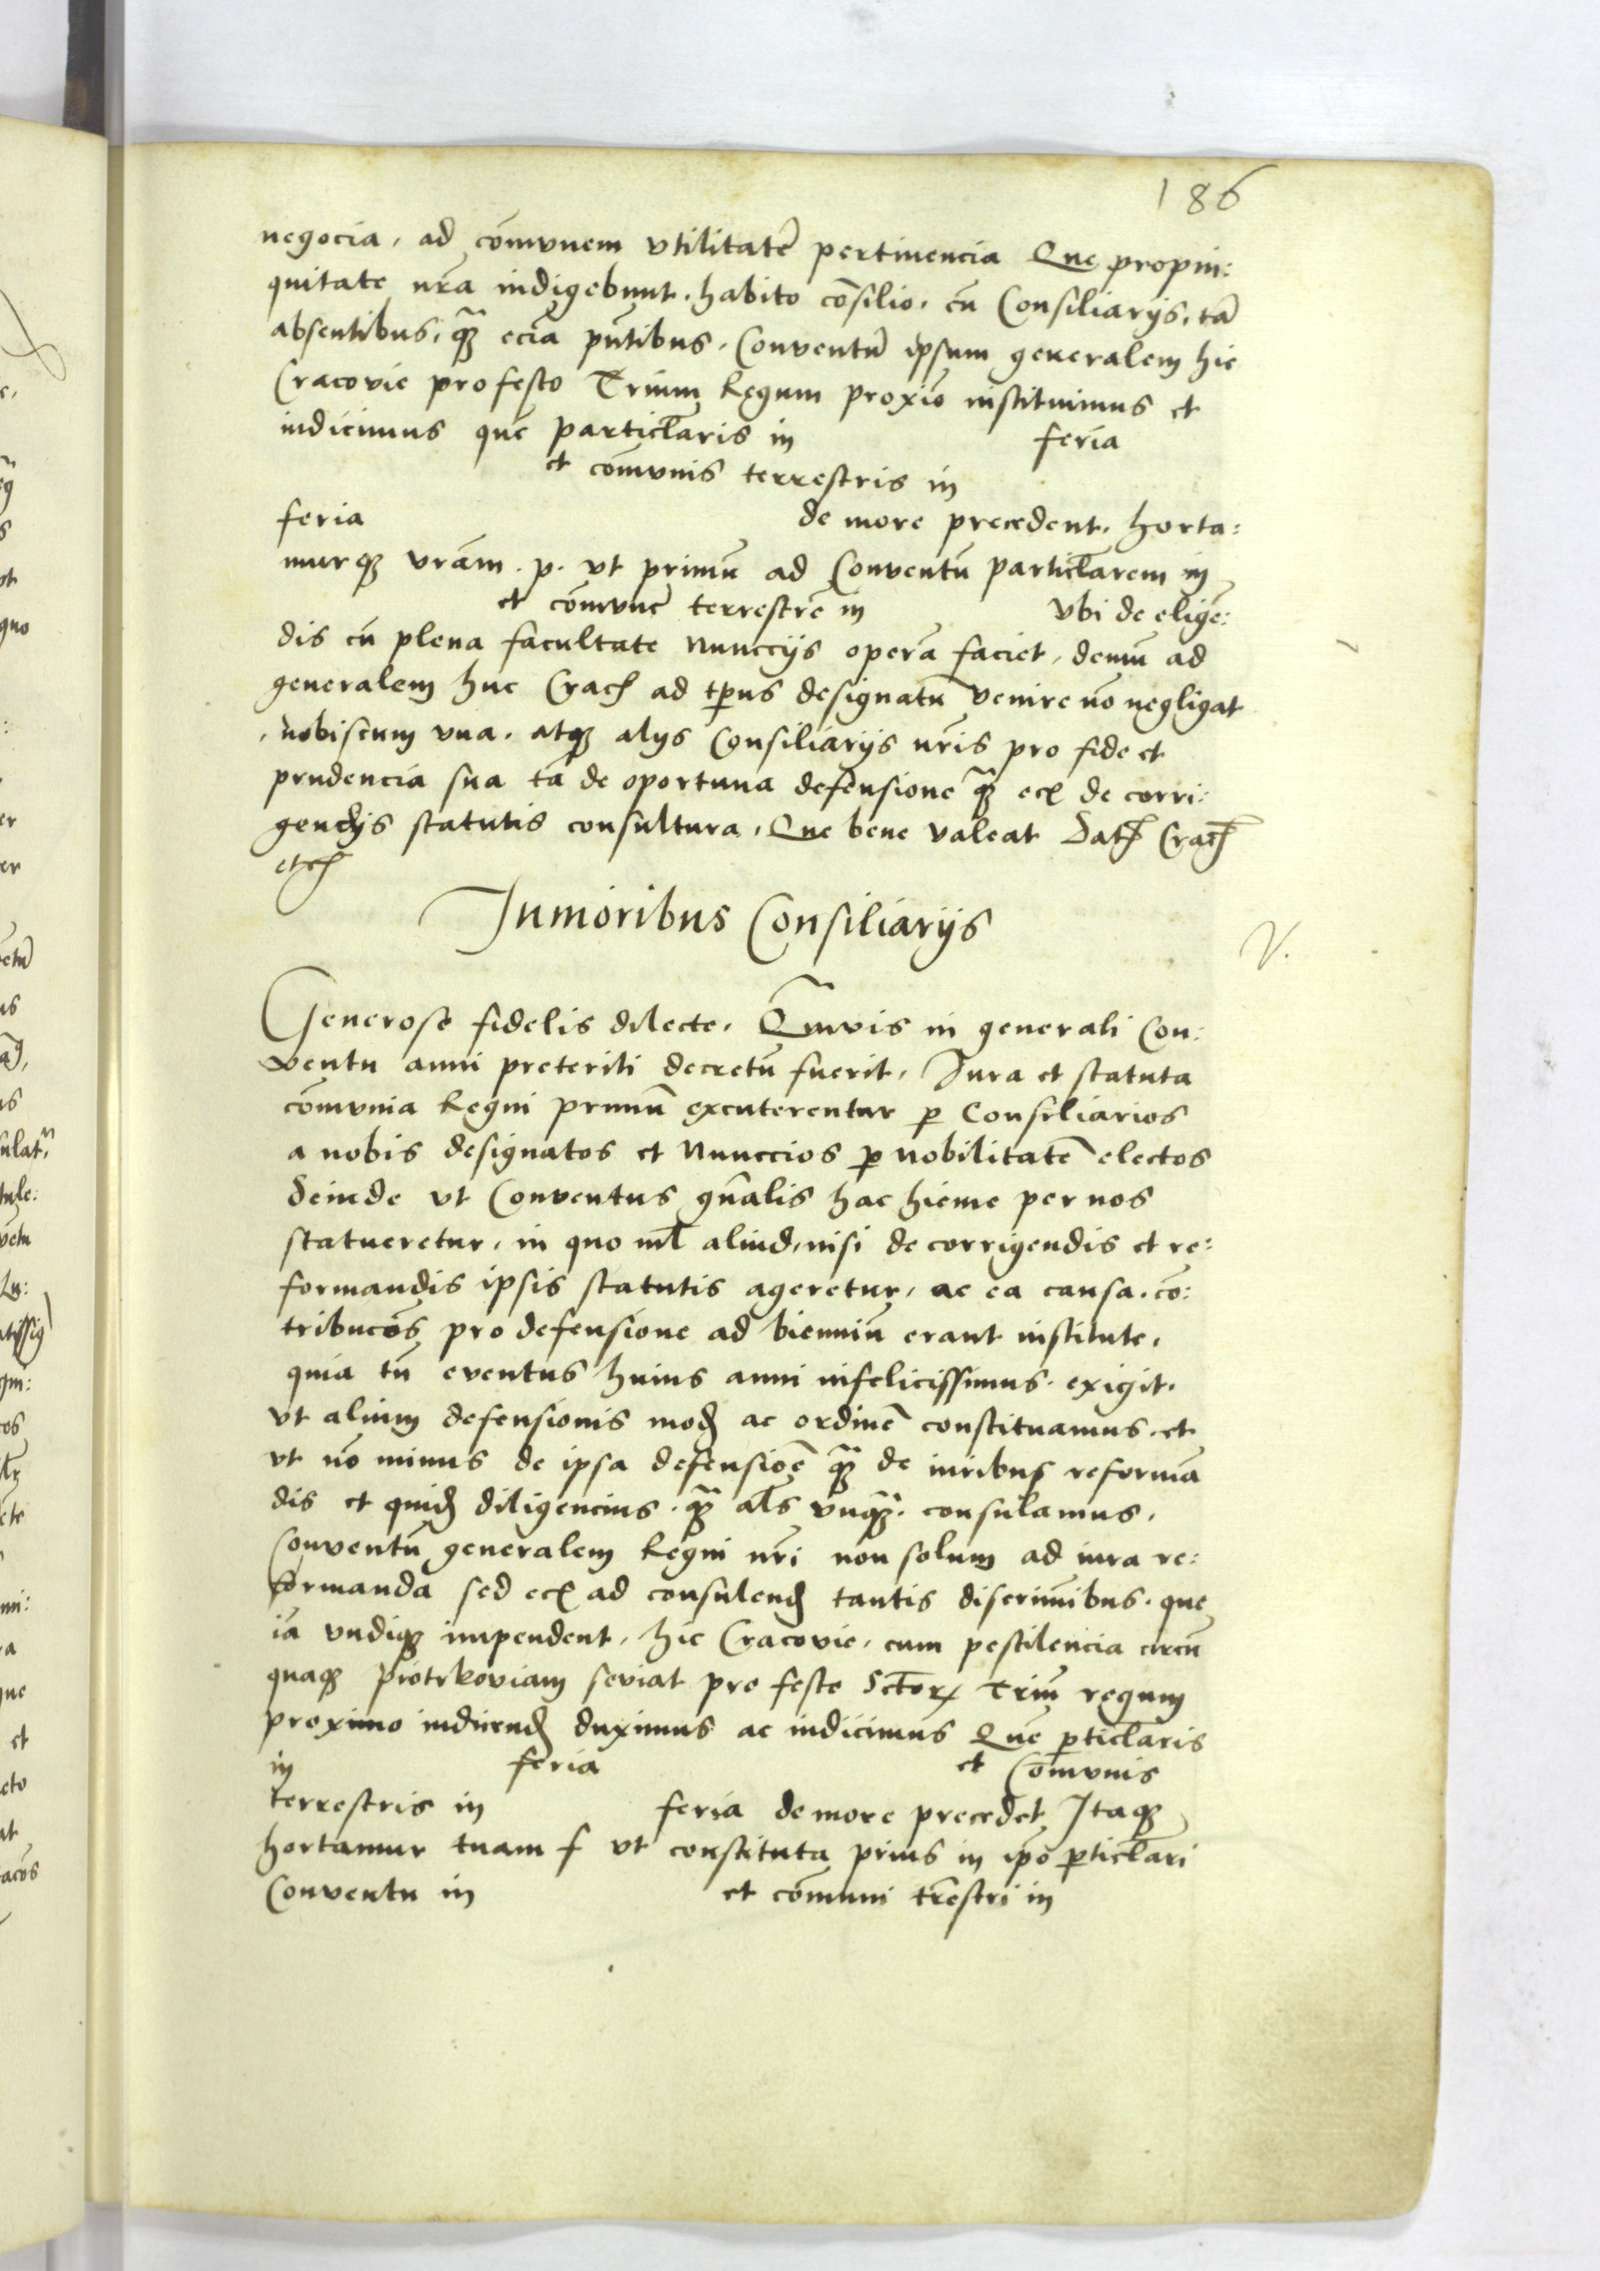 186
negocia, ad com̄vnem vtilitatē pertinencia Que propin:
quitate nr̄a indigebunt. habito cōsilio. cū Consiliarijs, tā
absentibus, q̄ꝫ eciā pn̄tibus. Conventū ipsum generalem hic
Cracovie pro festo Trium Regum proxiō instituimus et
indicimus quē particl̄aris in feria
et com̄vnis terrestris in
feria de more precedent. horta:
murqꝫ vrām. p. vt primū ad Conventū particl̄arem in
et com̄vnē terrestrē in vbi de eligē:
dis cū plena facultate nuncijs operā faciet, demū ad
generalem huc Crac̄ ad tp̄us designatū venire nō negligat
, nobiscum vna. atqꝫ alijs Consiliarijs nr̄is pro fide et
prudencia sua tā de oportuna defensione q̄ꝫ ec̄ de corri:
gendijs statutis consultura, Que bene valeat Dat̄ Crac̄
etc̄
Iunioribus Consiliarijs
V.
Generose fidelis dilecte. Q̄mvis in generali Con:
ventu anni preteriti decretū fuerit, Iura et statuta
com̄vnia Regni primū excuterentur p Consiliarios
a nobis designatos et Nunccios p nobilitatē electos
Deinde vt Conventus gn̄alis hac hieme per nos
statueretur, in quo nil̄ aliud, nisi de corrigendis et re:
formandis ipsis statutis ageretur, ac ea causa. cō:
tribucōs pro defensione ad bienniū erant institute,
quia tn̄ eventus huius anni infelicissimus. exigit.
vt alium defensionis mod̄ ac ordinē constituamus. et
vt nō minus de ipsa defensiōe q̄ꝫ de iuribus reformā
dis et quid̄ diligencius. q̄ꝫ al̄s vnq̄ꝫ. consulamus.
Conventū generalem Regni nr̄i non solum ad iura re:
formanda sed ec̄ ad consulend̄ tantis discriminibus. que
iā vndiqꝫ impendent, hic Cracovie, cum pestilencia circū
quaqꝫ Piotrkoviam seviat pro festo Sctōrꝝ Triū regum
proximo indicend̄ duximus ac indicimus Quē pticl̄aris
in feria et Com̄vnis
terrestris in feria de more precedet Itaqꝫ
hortamur tuam f vt constituta prius in ip̄o pticl̄ari
Conventu in et com̄uni tr̄estri in